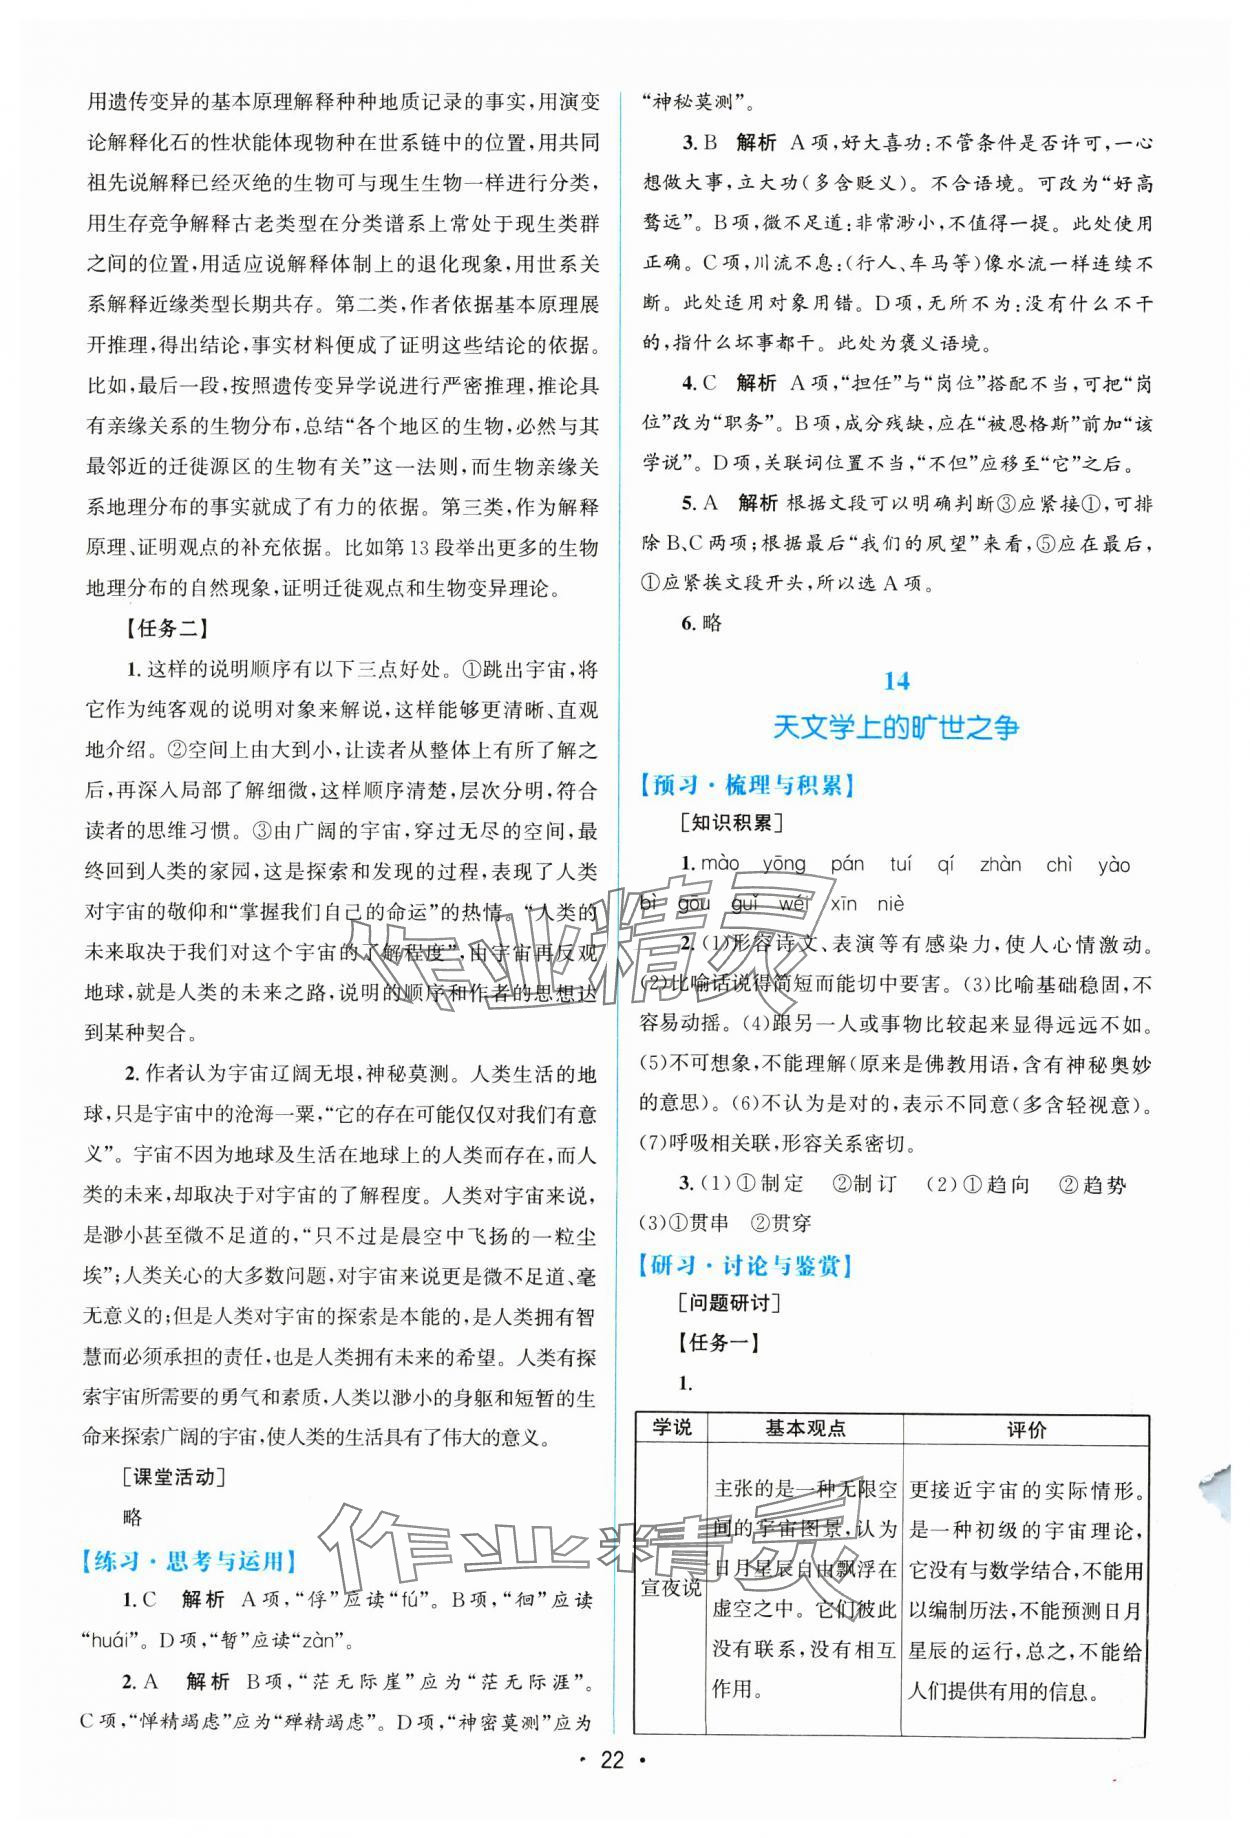 用遗传变异的基本原理解释种种地质记录的事实,用演变
论解释化石的性状能体现物种在世系链中的位置,用共同
祖先说解释已经灭绝的生物可与现生生物一样进行分类,
用生存竞争解释古老类型在分类谱系上常处于现生类群
之间的位置,用适应说解释体制上的退化现象,用世系关
系解释近缘类型长期共存。第二类,作者依据基本原理展
开推理,得出结论,事实材料便成了证明这些结论的依据。
比如,最后一段,按照遗传变异学说进行严密推理,推论具
有亲缘关系的生物分布,总结“各个地区的生物,必然与其
最邻近的迁徙源区的生物有关”这一法则,而生物亲缘关
系地理分布的事实就成了有力的依据。第三类,作为解释
原理、证明观点的补充依据。比如第 13 段举出更多的生物
地理分布的自然现象,证明迁徙观点和生物变异理论。
【任务二】
1. 这样的说明顺序有以下三点好处。①跳出宇宙,将
它作为纯客观的说明对象来解说,能够更清晰、直观
地介绍。②空间上由大到小,让读者从整体上有所了解之
后,再深入局部了解细微,这样顺序清楚,层次分明,符合
读者的思维习惯。③由广阔的宇宙,穿过无尽的空间,最
终回到人类的家园,这是探索和发现的过程,表现了人类
对宇宙的敬仰和“掌握我们自己的命运”的热情。“人类的
未来取决于我们对这个宇宙的了解程度”,由宇宙再反观
地球,就是人类的未来之路,说明的顺序和作者的思想达
到某种契合。
2. 作者认为宇宙辽阔无垠,神秘莫测。人类生活的地
球,只是宇宙中的沧海一粟,“它的存在可能仅仅对我们有意
义”。宇宙不因为地球及生活在地球上的人类而存在,而人
类的未来,却取决于对宇宙的了解程度。人类对宇宙来说,
是渺小甚至微不足道的,“只不过是晨空中飞扬的一粒尘
埃”;人类关心的大多数问题,对宇宙来说更是微不足道、毫
无意义的;但是人类对宇宙的探索是本能的,是人类拥有智
慧而必须承担的责任,也是人类拥有未来的希望。人类有探
索宇宙所需要的勇气和素质,人类以渺小的身躯和短暂的生
命来探索广阔的宇宙,使人类的生活具有了伟大的意义。
[课堂活动]
略
【练习·思考与运用】
1. C 解析 A 项,“俘”应读“fú”。B 项,“徊”应读
“huái”。D 项,“暂”应读“zàn”。
2. A 解析 B 项,“茫无际崖”应为“茫无际涯”。
C 项,“惮精竭虑”应为“殚精竭虑”。D 项,“神密莫测”应为
“神秘莫测”。
3. B 解析 A 项,好大喜功:不管条件是否许可,一心
想做大事,立大功(多含贬义)。不合语境。可改为“好高
骛远”。B 项,微不足道:非常渺小,不值得一提。此处使用
正确。C 项,川流不息:(行人、车马等)像水流一样连续不
断。此处适用对象用错。D 项,无所不为:没有什么不干
的,指什么坏事都干。此处为褒义语境。
4. C 解析 A 项,“担任”与“岗位”搭配不当,可把“岗
位”改为“职务”。B 项,成分残缺,应在“被恩格斯”前加“该
学说”。D 项,关联词位置不当,“不但”应移至“它”之后。
5. A 解析 根据文段可以明确判断③应紧接①,可排
除 B、C 两项;根据最后“我们的夙望”来看,⑤应在最后,
①应紧挨文段开头,所以选 A 项。
6. 略
14
天文学上的旷世之争
【预习·梳理与积累】
[知识积累]
1. mào yōng pán tuí qí zhàn chì yào
bì gōu guǐ wéi xīn niè
2. (1)形容诗文、表演等有感染力,使人心情激动。
(2)比喻话说得简短而能切中要害。(3)比喻基础稳固,不
容易动摇。(4)跟另一人或事物比较起来显得远远不如。
(5)不可想象,不能理解(原来是佛教用语,含有神秘奥妙
的意思)。(6)不认为是对的,表示不同意(多含轻视意)。
(7)呼吸相关联,形容关系密切。
3. (1)①制定 ②制订 (2)①趋向 ②趋势
(3)①贯串 ②贯穿
【研习·讨论与鉴赏】
[问题研讨]
【任务一】
1.
学说 基本观点 评价
宣夜说
主张的是一种无限空
间的宇宙图景,认为
日月星辰自由飘浮在
虚空之中。它们彼此
没有联系,没有相互
作用。
更接近宇宙的实际情形。
是一种初级的宇宙理论,
它没有与数学结合,不能用
以编制历法,不能预测日月
星辰的运行,总之,不能给
人们提供有用的信息。
· 22 ·
作业精灵
作业精灵